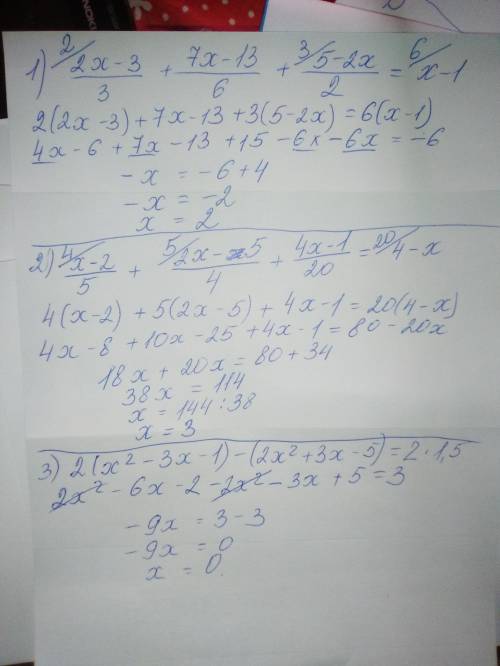 1) 2/ 2x-3/3 + 7x-13/6 + 3/ 5-2x/2 = 6/ x-1
2(2x-3)+7x-13+3(5-2x)=6(x-1)
4x-6+7x-13+15-6x-6x=-6
-x = -6+4
-x = -2
x = 2
2) 4/ x-2/5 + 5/ 2x-5/4 + 4x-1/20 = 20/ 4-x
4(x-2)+5(2x-5)+4x-1=20(4-x)
4x-8+10x-25+4x-1=80-20x
18x+20x=80+34
38x = 114
x = 144:38
x = 3
3) 2(x²-3x-1)-(2x²+3x-5)=2·1,5
2x²-6x-2-2x²-3x+5=3
-9x = 3-3
-9x = 0
x = 0